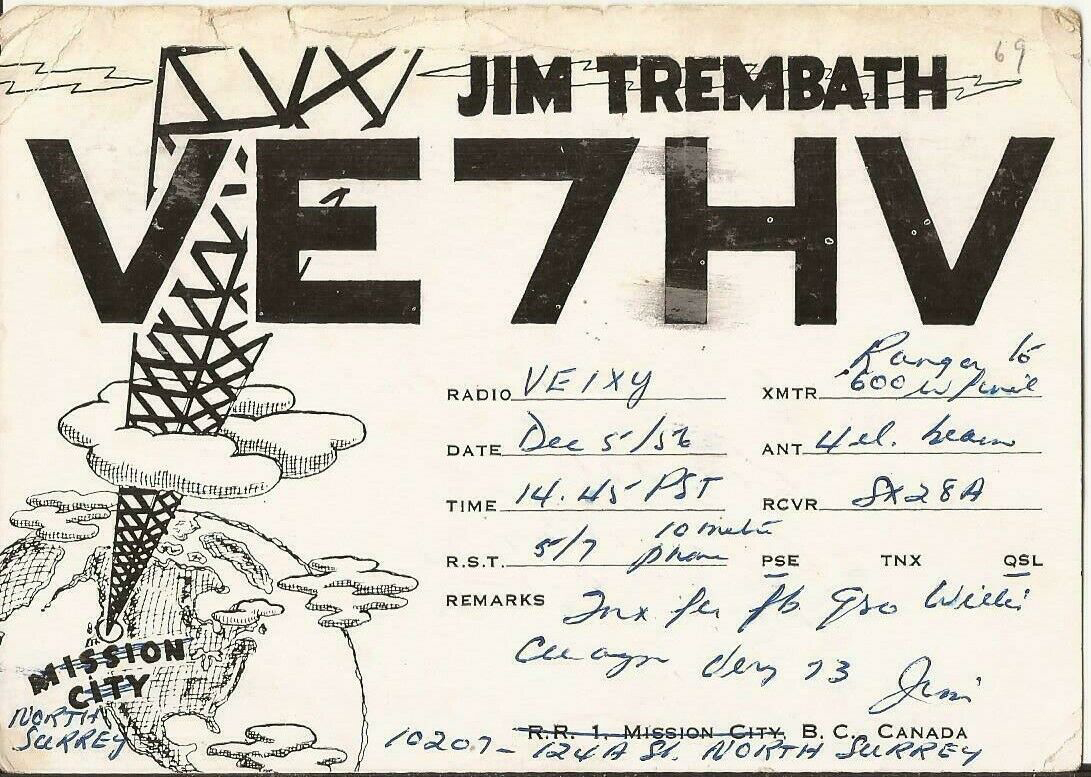 69
JIM TREMBATH
VE7HV
RADIO VE1XY
XMTR Ranger to 600 w/
DATE Dec 5/56
ANT 4 el. beam
TIME 14.45 PST
RCVR SX28A
R.S.T. 5/7 10 metre phone
PSE TNX QSL
REMARKS Tnx fer fb Qso Willi
Cuagn Very 73 Jim
MISSION
CITY
NORTH
SURREY
R.R. 1, MISSION CITY, B. C., CANADA
10207 - 124A St. NORTH SURREY